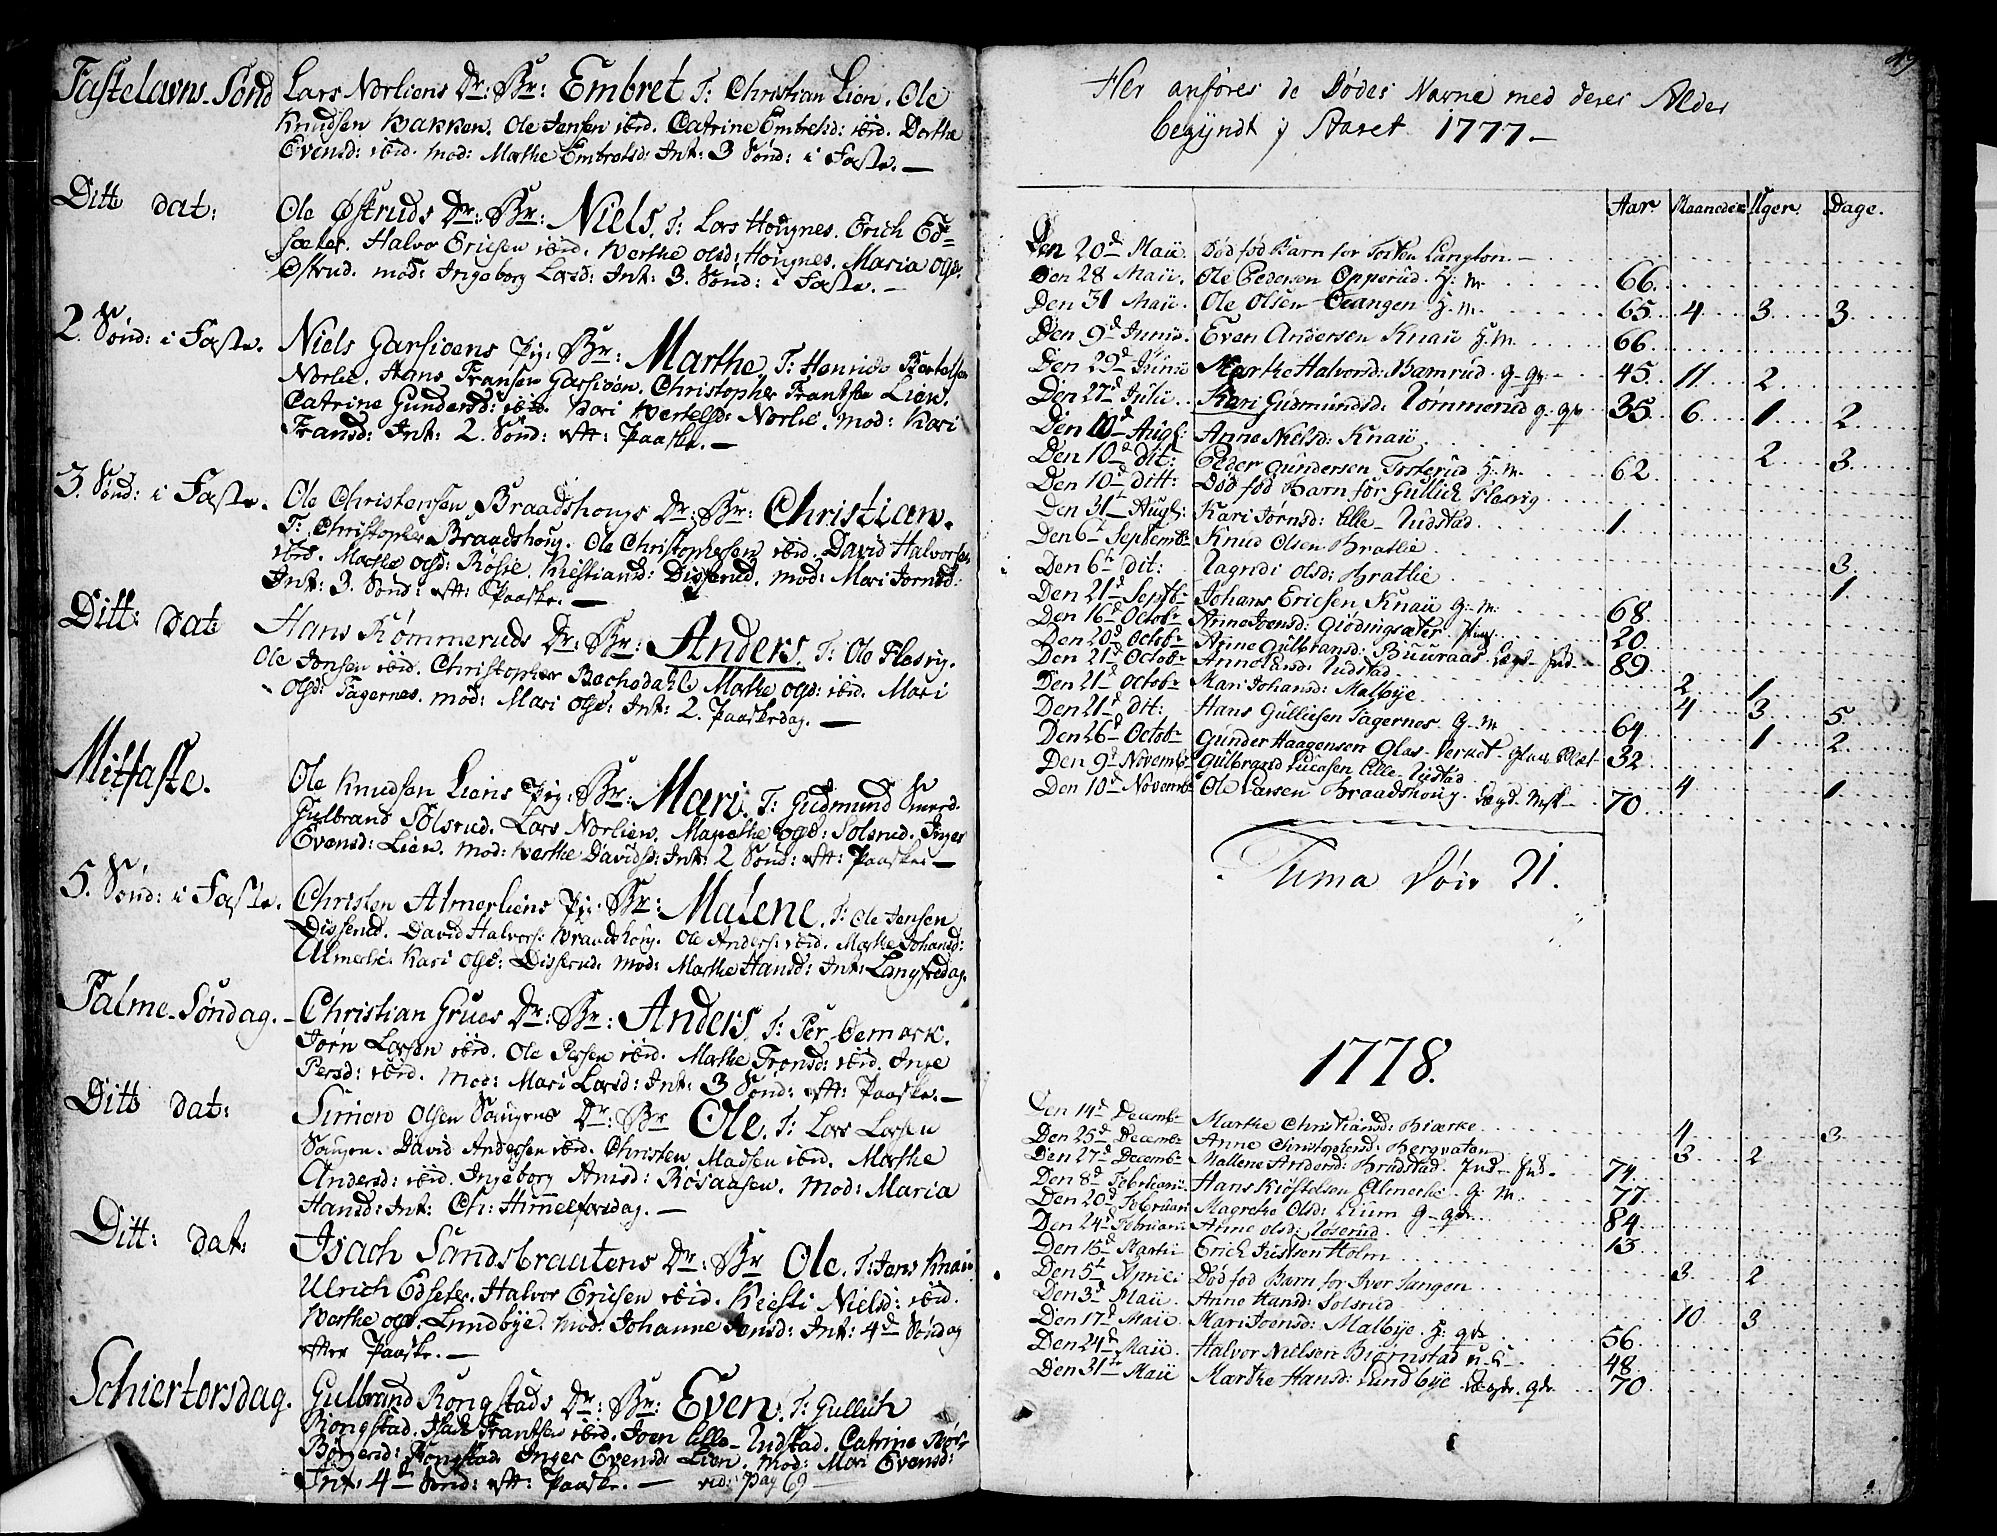 Fastelavns-Sønd Lars Norliens Dr: Br: Embret T: Christian Lien. Ole
Knudsen Bakken. Ole Jensen ibid. Catrine Embretsd: ibid. Dorthe
Evensd: ibid. mod: Marthe Embretsd: Int: 3 Sønd: i Faste. —
Ditt dat: Ole Østruds Dr: Br: Niels. T: Lars Hougnes. Erich Ed=
sæter. Halvor Ericsen ibid. Berthe Olsd: Hougnes. Maria Olsd:
Østrud. mod: Ingeborg Larsd: Int: 3. Sønd: i Faste. —
2. Sønd: i Faste. Niels Garsioens Pig: Br: Marthe. T: Henrich Bertelsen
Norlie. Hans Fransen Garsioen. Christopher Frantsen Lien.
Catrine Gundersd: ibid. Kari Bertelsd: Norlie. mod: Kari
Fransd: Int: 2. Sønd: eft: Paaske. —
3. Sønd: i Faste. Ole Christensen Braadshougs Dr: Br: Christian.
T: Christopher Braadshoug. Ole Christophersen ibid. David Halvorsen
ibid. Marthe Olsd: Røsie. Kiestiansd: Disserud. mod: Mari Jørnsd:
Int: 3. Sønd: eft: Paaske. —
Ditt: dat: Hans Rømmeruds Dr: Br: Anders. T: Ole Flesvig.
Ole Jensen ibid. Christopher Bechedahl Marthe Olsd: ibid. Mari
Olsd: Tagernes. mod: Mari Olsd: Int: 2. Paaskedag. —
Mitfaste. Ole Knudsen Liens Pig: Br: Mari. T: Gudmund Smerd.
Gulbrand Solsrud. Lars Norlien. Marethe Olsd: Solsrud. Inger
Evensd: Lien. mod: Berthe Davidsd: Int: 2 Sønd: eft: Paaske —
5. Sønd: i Faste. Christen Almerliens Pig: Br: Malene. T: Ole Jensen
Disserud. David Halvors: Braadshoug. Ole Anders: ibid. Marthe Johansd:
Almerlie. Kari Olsd: Disserud. mod: Marthe Hansd: Int: Langfredag.
Palme-Søndag. Christian Grues Dr: Br: Anders. T: Per Oemark.
Jørn Larsen ibid. Ole Persen ibid. Marthe Tronsd: ibid. Inge
Persd: ibid. mod: Mari Larsd: Int: 3 Sønd: eft: Paaske. —
Ditt dat: Simon Olsen Sougens Dr: Br Ole. T: Lars Larsen
Sougen. David Andersen ibid. Christen Madsen ibid. Marthe
Andersd: ibid. Ingeborg Anisd: Røsaasen. mod: Maria
Hansd: Int: Ch: Himmelfarsdag. —
Ditt: dat: Isach Sandsbrautens Dr: Br Ole. T: Jens Knai
Ulrich Edseter. Halvor Ericsen ibid. Kiesti Nielsd: ibid.
Berthe Olsd: Lundbye. mod: Johanne Jensd: Int: 4d Søndag
efter Paaske. —
Schiertorsdag. Gulbrand Rongstads Dr: Br: Even. T: Gullich
Rongstad. Isak Frantsen ibid. Joen Lille-Udstad. Catrine Bør-
Børgersd: Rongstad. Inger Evensd: Lien. mod: Mari Evensd:
Int: 4de Sønd: eft: Paaske. — vid: Pag 69
49
Her anføres de Dødes Navne med deres Alder
begyndt i Aaret 1777 —
Aar. Maaneder. Uger. Dage.
Den 20d Maii. Død fød Barn for Torsten Langton. —
Den 28 Maii. Ole Pedersen Opperud. H: M. 66.
Den 31 Maii. Ole Olsen Evangen H: M. 65. 4. 3. 3.
Den 9d Junii. Even Andersen Knaii H: M. 66.
Den 29d Junii Marthe Halvorsd: Bamrud. G-Qv. 45. 11. 2.
Den 27d Julii. Kari Gudmundsd: Tømmerud G-Qv 35. 6. 1. 2.
Den 10d Aug: Anne Nielsd: Knaii. 2. 3.
Den 10d dit: Peder Gundersen Tosterud H: M. 62.
Den 10d ditt: Død fød Barn for Gullich Flesvig
Den 31t Aug: Kari Jørnsd: Lille-Udstad. 1.
Den 6t Septembr Knud Olsen Bratlie 3.
Den 6t dit: Ragnidi Olsd: Bratlie 1.
Den 21d Septbr Johans Ericsen Knaii G: M. 68.
Den 16d Octobr Anne Joensd: Giødingsæter. Pig. 20.
Den 20d Octobr Anne Gulbransd: Buuraas. Lægd-Ind- 89.
Den 21d Octobr Anne Larsd: Udstad. 2. 1.
Den 21d Octobr Mari Johansd: Malbye. 4. 3. 5.
Den 21d dit: Hans Gullicsen Tagernes. G-M 64.
Den 26d Octobr Gunder Haagensen Glas-Verket Glas Blæs- 32. 1. 2.
Den 9d Novembr Gulbrand Lucasen Lille-Udstad 4. 1.
Den 10d Novembr Ole Larsen Braadshoug. Lægd-Msk- 70.
Suma Døde 21.
1778.
Den 14d Decembr Marthe Christiansd: Biærke 4. 3.
Den 25d Decembr Anne Christophersd: Bergvaten 3. 2.
Den 27d Decembr Mallene Andersd: Brudstad. Ind-Ind- 74.
Den 8d Februarii. Hans Kiøstelsen Almerlie. G: M. 77.
Den 20d Februari Magrethe Olsd: Lium G-Qv. 84.
Den 24d Februari. Anne Olsd: Røserud. 13.
Den 15d Martii Erich Justsen Holm 3. 2.
Den 5t Aprili Død fød Barn for Iver Tangen
Den 3d Maii Anne Hansd: Solsrud 10. 3.
Den 17d Maii. Kari Joensd: Malbye. H: Qv. 56.
Den 24d Maii. Halvor Nielsen Biørnstad u-K- 48.
Den 31te Maii Marthe Hansd: Lundbye Lægds. Qv. 70.